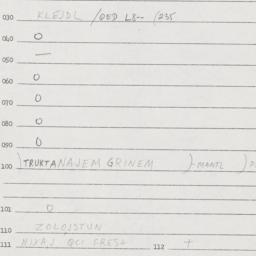 030 KLEJDL /QED L8-- /235
040 O
050 —
060 O
070 O
080 O
090 O
100 )TRUKTANAJEM GRINEM )-MAATL )
101 O
110 ZOLOJSTUN
111 NIXAJ QCI FRESH 112 +